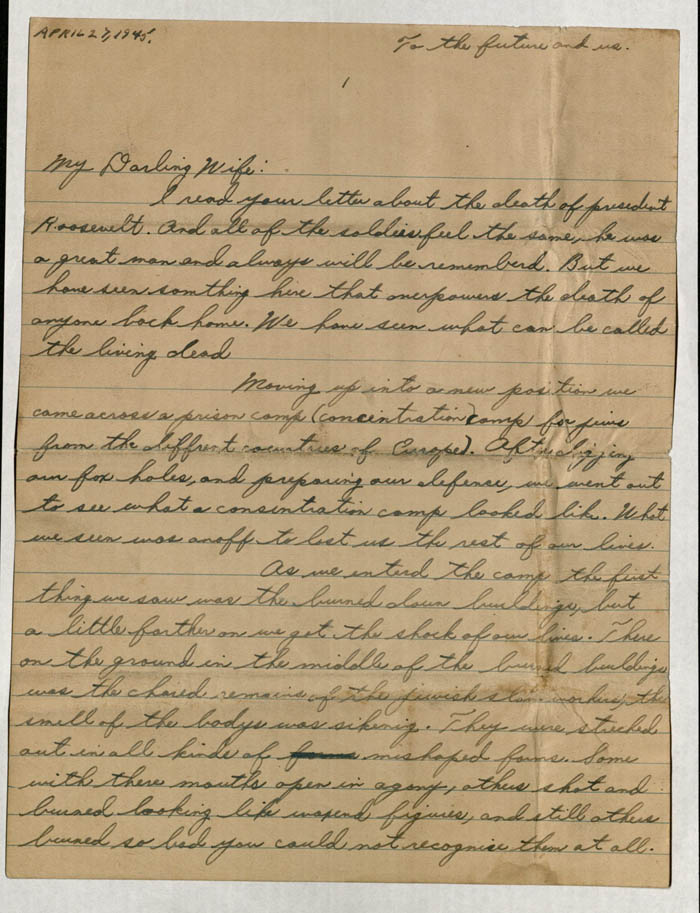 APRIL 27, 1945.
To the future and us.
1
My Darling Wife:
I read your letter about the death of president
Roosevelt. And all of the soldiers feel the same, he was
a great man and always will be rememberd. But we
have seen somthing here that overpowers the death of
anyone back home. We have seen what can be called
the living dead
Moving up into a new position we
came across a prison camp (concintration camp for jews
from the diffrent countries of Europe). After digging
our fox holes, and preparing our defense, we went out
to see what a consintration camp looked like. What
we seen was anoff to last us the rest of our lives.
As we enterd the camp the first
thing we saw was the burned down buildings, but
a little farther on we got the shock of our lives. There
on the ground in the middle of the burned buildings
was the chared remains of the jewish slave workers, the
smell of the bodys was sikenig. They were streched
out in all kinds of forms mishaped forms. Some
with there mouths open in agony, others shot and
burned looking like waxend figures, and still others
burned so bad you could not recognise them at all.